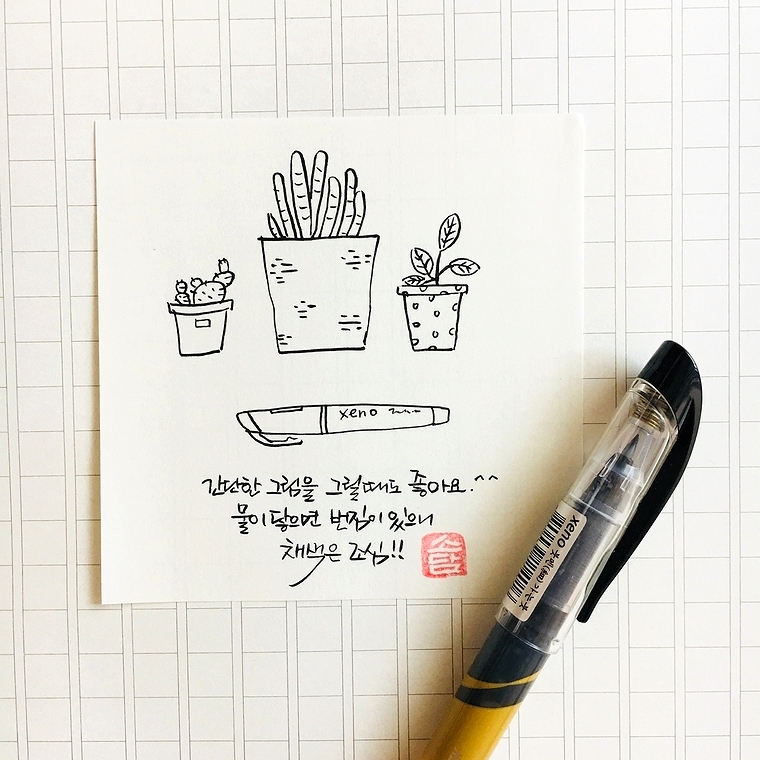 xeno
간단한 그림을 그릴때도 좋아요.^^
물이닿으면 번짐이있으니
채색은 조심!!
소담
xeno 붓펜(細) 가는붓